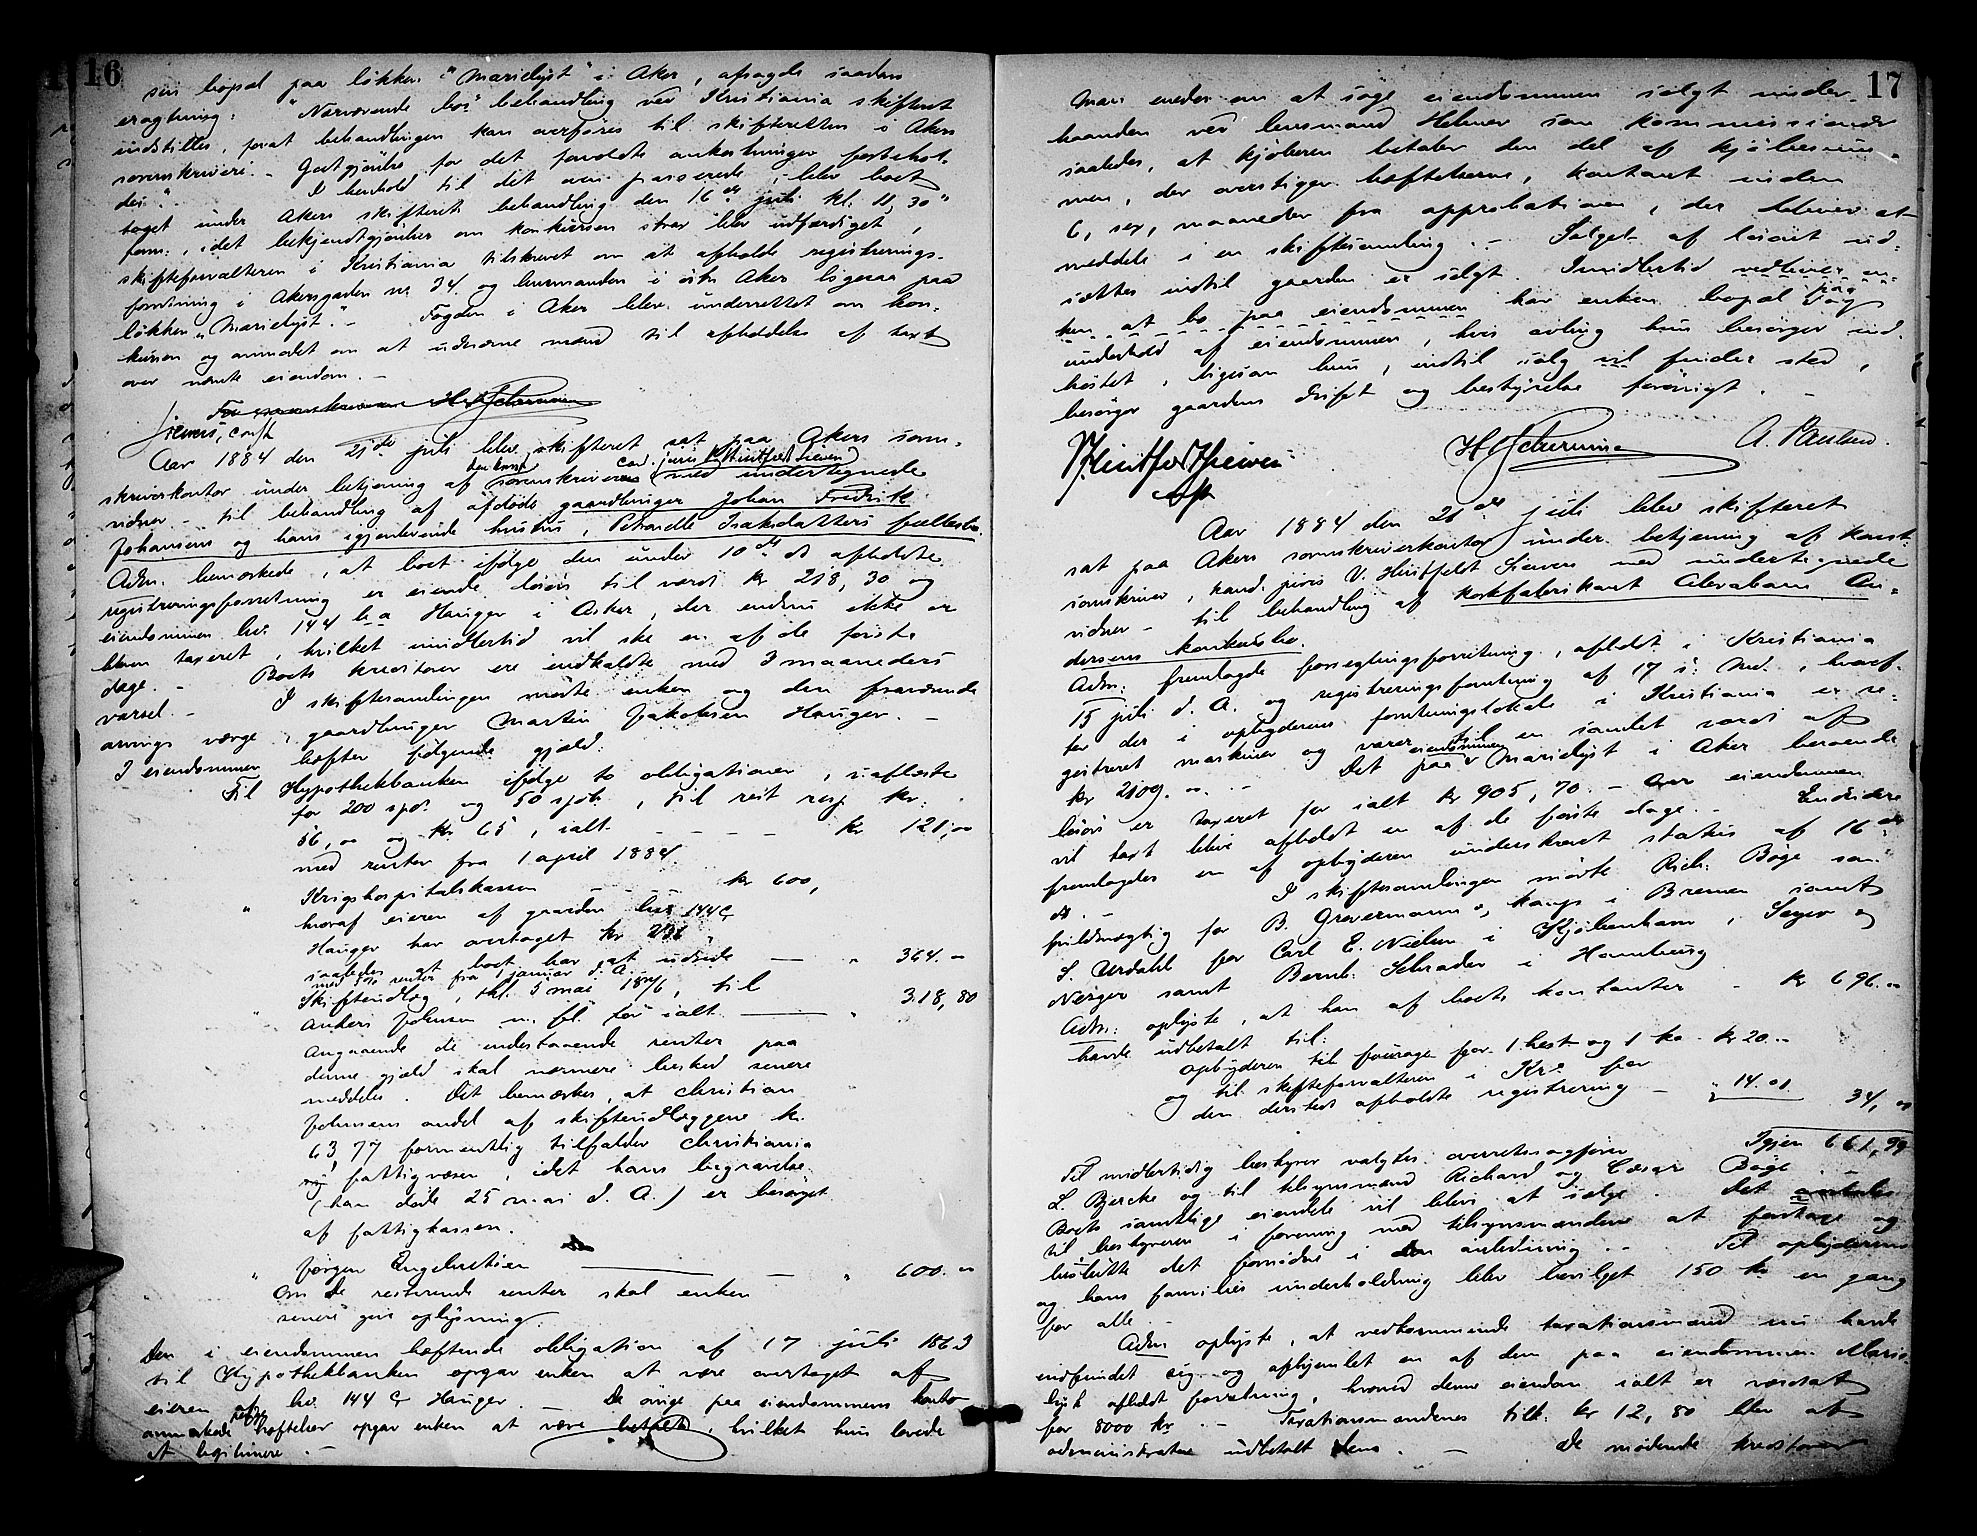 16
sin bopæl paa løkken "Marielyst" i Aker, afsagde saadan
eragtning: "Nærværende bos behandling ved Kristiania skifteret
indstilles, forat behandlingen kan overføres til skifteretten i Akers
sorenskriveri. - Godtgjørelse for det forvoldte forbehol-
des". - I henhold til det oven passerede, blev boet
taget under Akers skifterets behandling den 16de juli kl. 11,30
form., idet bekjendtgjørelser om konkursen strax blev udfærdiget,
skifteforvalteren i Kristiania tilskrevet om at afholde registrerings-
forretning i Akersgaden nr 34. og lensmanden i østre Aker ligesaa paa
løkken "Marielyst." - Fogden i Aker blev underrettet om kon-
kursen og anmodet om at udnævne mænd til afholdelse af taxt
over nævnte eiendom. -
Sievers, const
Aar 1884 den 21de juli blev skifteret sat paa Akers soren-
skriverkontor under betjening af den konst. sorenskriver cand. juris V. Huitfeldt Sievers med undertegnede
vidner - til behandling af afdøde gaardbruger Johan Fredrik
Johansens og hans igjenlevende hustru, Petronelle Isaksdatters fællesbo.
Adm. bemærkede, at boet ifølge den under 10de ds afholdte
registreringsforretning er eiende løsøre til værdi kr 218,30 og
eiendommen br. 144 b a Hauger i Asker, der endnu ikke er
bleven taxeret, hvilket imidlertid vil ske en af de første
dage. - Boets kreditorer ere indkaldte med 3 maaneders
varsel. - I skiftesamlingen mødte enken og den fraværende
arvings værge, gaardbruger Martin Jakobsen Hauger. -
I eiendommen hæfter følgende gjæld:
Til Hypothekbanken ifølge to obligationer, uaflæste
for 200 spd. og 50 spd., til rest resp kr.
56,00 og kr 65, ialt - - - - kr 121,00
med renter fra 1 april 1884.
" Krigshospitalskassen - - - kr 600,
hvoraf eieren af gaarden br 144 c
Hauger har overtaget kr 236
saaledes at boet har at udrede - " 364.-
med 5% renter fra 1 januar d. A.
" Skifteudlæg, thl. 5 mai 1876, til
Anders Johnsen m. fl. for ialt - " 318,80
Angaaende de indestaaende renter paa
denne gjæld skal nærmere besked senere
meddeles. Det bemærkes, at Christian
Johnsens andel af skifteudlæggene kr.
63,77 formentlig tilfalder Christiania
fattigvæsen, idet hans begravelse
(han døde 25 mai d. A.) er besørget
af fattigkassen.
" Jørgen Engebretsen - - " 600.-
Om de resterende renter skal enken
senere give oplysning.
Den i eiendommen hæftende obligation af 17 juli 1863
til Hypothekbanken opgav enken at være overtaget af
eieren af br. 144 c Hauger. - De øvrige paa eiendommens konto
anmærkede hæftelser opgav enken at være betalt, hvilket hun lovede
at legitimere. -
17
man enedes om at søge eiendommen solgt under-
haanden ved lensmand Helmer som kommissionær
saaledes, at kjøberen betaler den del af kjøbesum-
men, der overstiger hæftelserne, kontant inden
6, sex, maaneder fra approbationen, der bliver at
meddele i en skiftesamling. - Salget af løsøret ud-
sættes indtil gaarden er solgt. Imidlertid vedbliver en-
ken at bo paa eiendommen har enken bopæl paa og
underhold af eiendommen, hvis avling hun besørger ind-
høstet, ligesom hun, indtil salg vil finder sted,
besørger gaardens drift og bestyrelse forøvrigt. -
V. Huitfeldt Sievers
const
A. Paulsen.
Aar 1884 den 21de juli blev skifteret
sat paa Akers sorenskriverkontor under betjening af konst.
sorenskriver, kand. juris V. Huitfeldt Sievers med undertegnede
vidner - til behandling af korkfabrikant Abraham An-
dersens konkursbo.
Adm. fremlagde forseglingsforretning, afholdt i Kristiania
15 juli d. A. og registreringsforretning af 17 s. Md., hvoref-
ter der i opbyderens forretningslokale i Kristiania er re-
gistreret maskiner og varer til en samlet værdi af
kr 2109.-. Det paa eiendommen Marielyst i Aker beroende
løsøre er taxeret for ialt kr 905,70. - Over eiendommen
vil taxt blive afholdt en af de første dage. - Endvidere
fremlagdes en af opbyderen underskrevet status af 16de
ds. - I skiftesamlingen mødte Rich. Bøge som
fuldmægtig for B. Grovermann, komp i Bremen samt
S. Urdahl for Carl E. Nielsen i Kjøbenhavn, Sager &
Nerger samt Bernh. Schrader i Hamburg
Adm. oplyste, at han af boets kontanter - kr 696.-
havde udbetalt til:
opbyderen til fourage for 1 hest og 1 ko. kr 20.-
og til skifteforvalteren i Kra for
den dersteds afholdte registrering - " 14.00 34,00
Igjen 661,99
Til midlertidig bestyrer valgtes overretssagfører
L. Bjercke og til tilsynsmænd Richard og Cæsar Bøge. -
Boets samtlige eiendele vil blive at sælge. Det overlades
til bestyreren i forening med tilsynsmændene at foretage og
beslutte det fornødne i den anledning. - Til opbyderens
og hans families underholdning blev bevilget 150 kr en gang
for alle. -
Adm oplyste, at vedkommende taxationsmænd nu havde
indfundet sig og afhjemlet en af dem paa eiendommen Marie-
lyst afholdt forretning, hvorved denne eiendom ialt er værdsat
for 8000 kr. - Taxationsmændenes tilk. kr 12,80 blev af
administrator udbetalt dem. - De mødende kreditorer